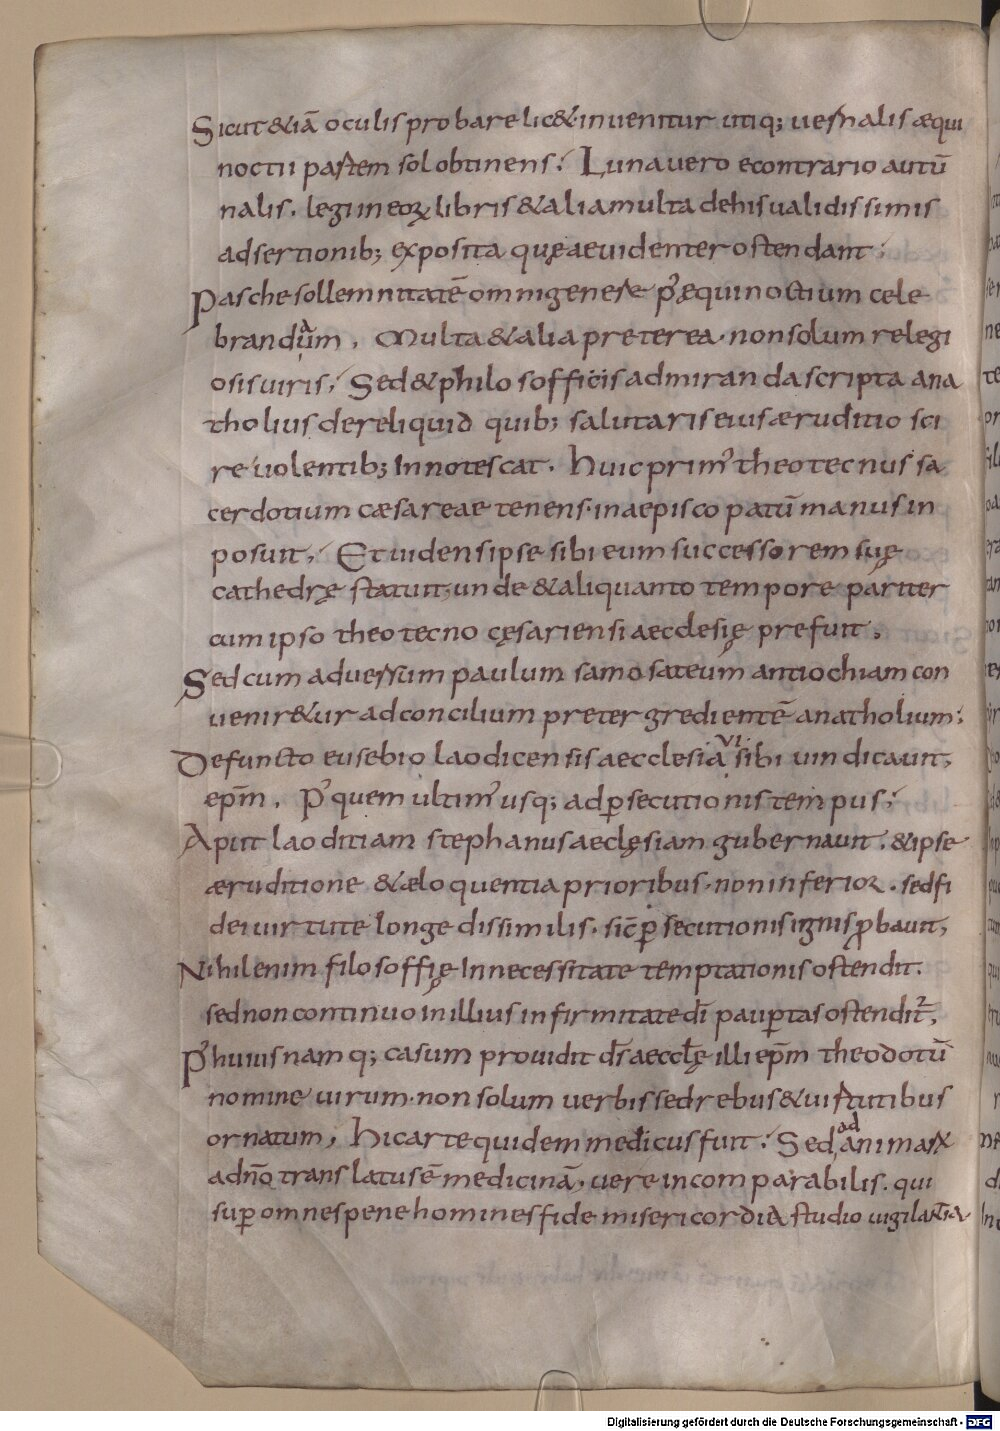 Sicut &iā oculis probare lic&. inuenitur utiq; uernalis æqui
noctii partem sol obtinens; Luna uero econtrario autū
nalis. legi in eoꝝ libris & alia multa de his ualidissimis
adsertionib; exposita quę aeuidenter ostendant;
Pasche sollemnitatē omnigenere pꝰ ęquinoctium cele
brandum. Multa & alia preterea. non solum relegi
osis uiris; Sed & philosofficis admiranda scripta ana
tholius dereliquid quib; salutaris eius æruditio sci
re uolentib; Innotescat. Huic primꝰ theotecnus sa
cerdotium cæsareae tenens. in aepiscopatū manus in
posuit; Et uidens ipse sibi eum successorem suę
cathedrę statuit; unde & aliquanto tempore pariter
cum ipso theotecno cęsariensi aecclesię prefuit.
Sed cum aduersum paulum samosateum antiochiam con
uenir&ur ad concilium preter gredientē anatholium;
Defuncto eusebio laodicensis aecclesiā ui sibi uindicauit,
ep̄m. Pꝰ quem ultimꝰ usq; ad ꝑsecutionis tempus;
Aput laoditiam stephanus aeclęsiam gubernauit. & ipse
æruditione & ælo quentia prioribus. non inferior. sed fi
dei uirtute longe dissimilis. sic̄ ꝑsecutionis ignis ꝓbauit,
Nihil enim filosoffię In necessitate temptationis ostendit.
sed non continuo in illius infirmitate dī pauꝑtas ostendit᷑.
Pꝰ huius namq; casum prouidit dī aecclę illi ep̄m theodotū
nomine uirum. non solum uerbis sed rebus & uirtutibus
ornatum, Hic arte quidem medicus fuit; Sed ad animarꝝ
ad dn̄o translatus ē medicinā, uere incomparabilis. qui
suꝑ omnes pene homines fide misericordia studio uigilantia
Digitalisierung gefördert durch die Deutsche Forschungsgemeinschaft - DFG